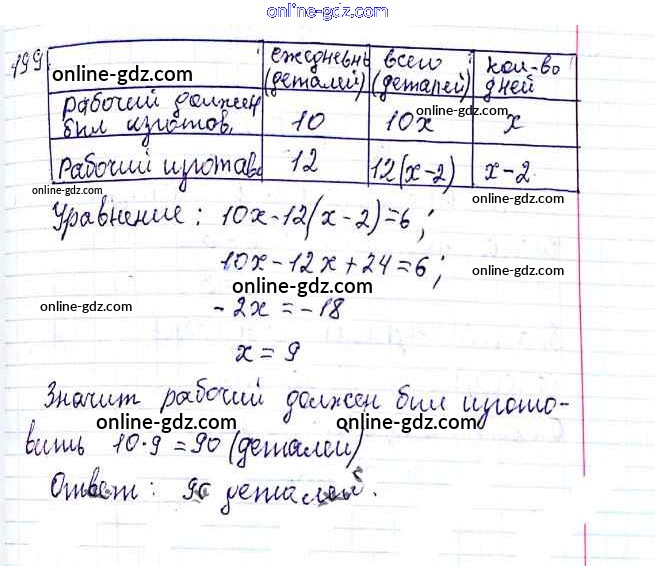 online-gdz.com
199
ежедневн (деталей) всего (деталей) кол-во дней
online-gdz.com
рабочий должен был изготов. 10 10x x
online-gdz.com
Рабочий изготав. 12 12(x-2) x-2
online-gdz.com
online-gdz.com
Уравнение: 10x-12(x-2)=6;
10x-12x+24=6;
online-gdz.com
-2x=-18
online-gdz.com
online-gdz.com
x=9
Значит рабочий должен был изгото-
online-gdz.com
online-gdz.com
вить 10·9=90 (деталей)
Ответ: 90 деталей.
online-gdz.com
online-gdz.com